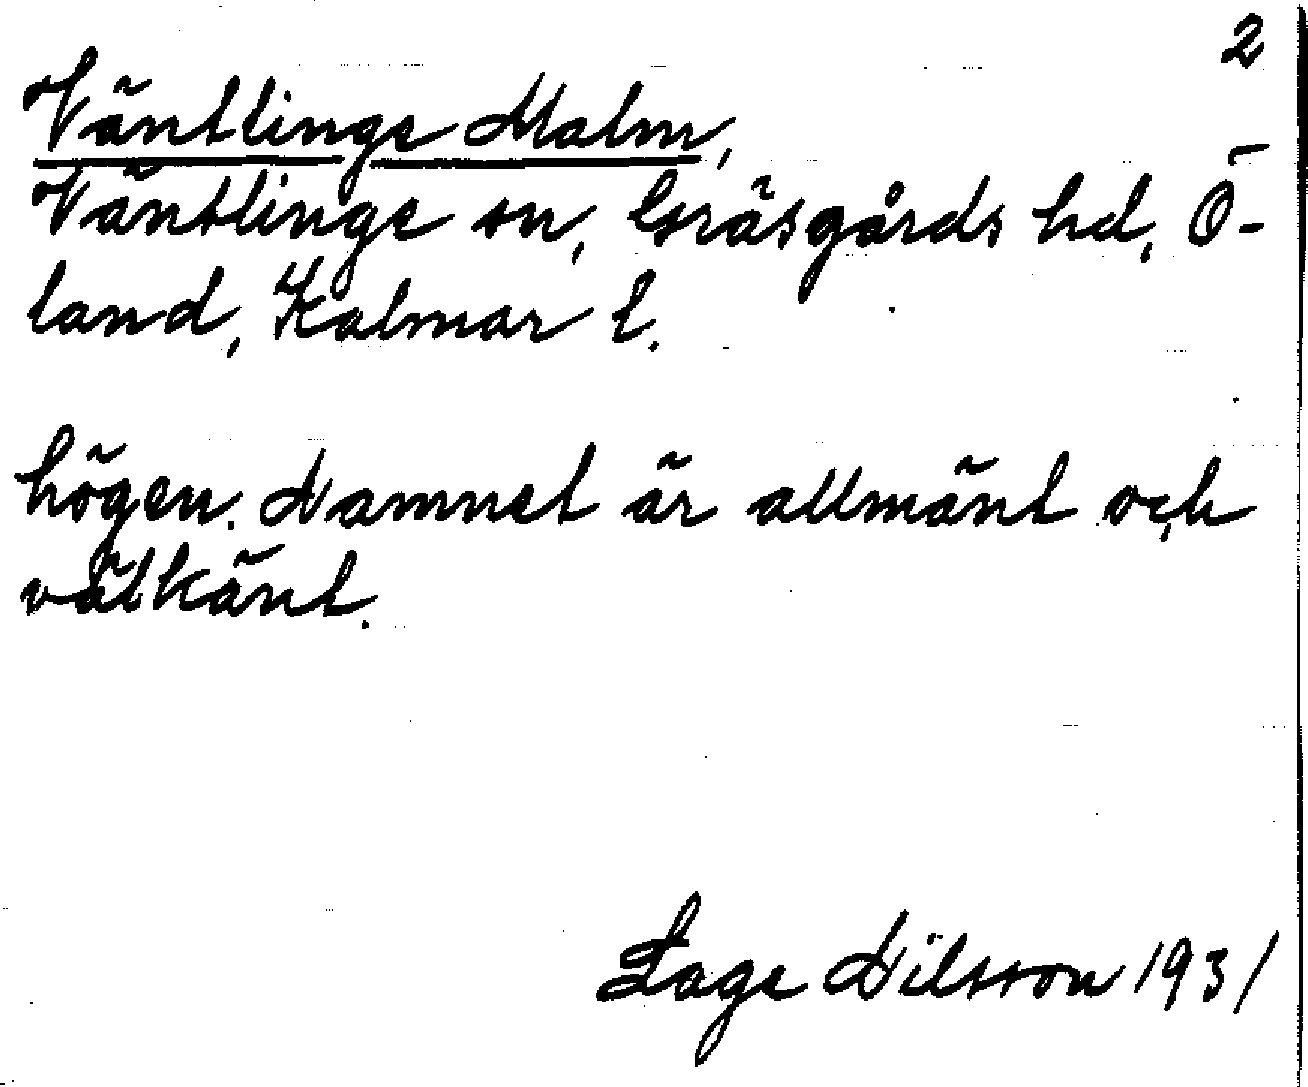 2
Väntlinge Malm,
Väntlinge sn, Gräsgårds hd, Ö-
land, Kalmar l.
högen. Namnet är allmänt och
välkänt.
Lage Nilsson 1931